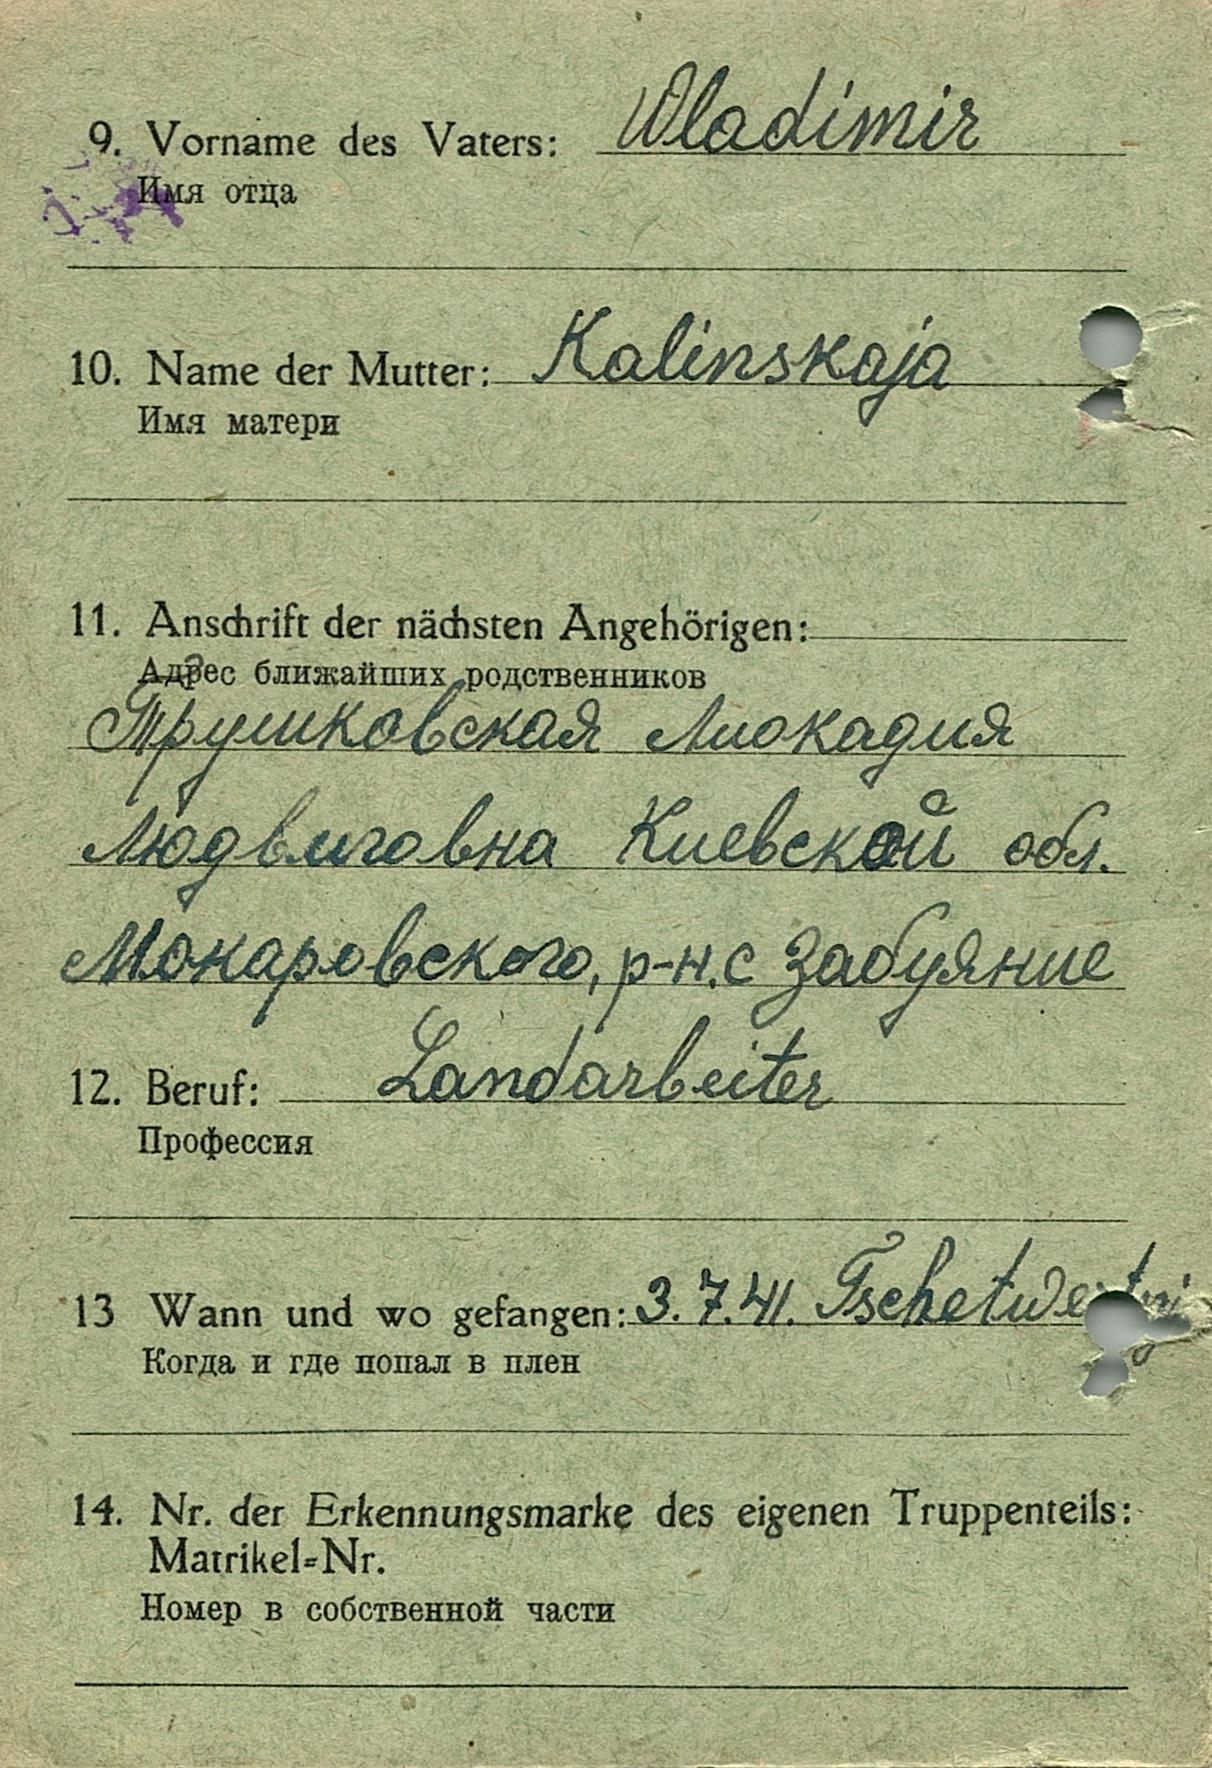 9. Vorname des Vaters: Wladimir
Имя отца
10. Name der Mutter: Kalinskaja
Имя матери
11. Anschrift der nächsten Angehörigen:
Адрес ближайших родственников
Трушковская Лиокадия
Людвиговна Киевской обл.
Мокаровского, р-н. с Забуяние
12. Beruf: Landarbeiter
Профессия
13 Wann und wo gefangen: 3.7.41.
Когда и где попал в плен
14. Nr. der Erkennungsmarke des eigenen Truppenteils:
Matrikel=Nr.
Номер в собственной части